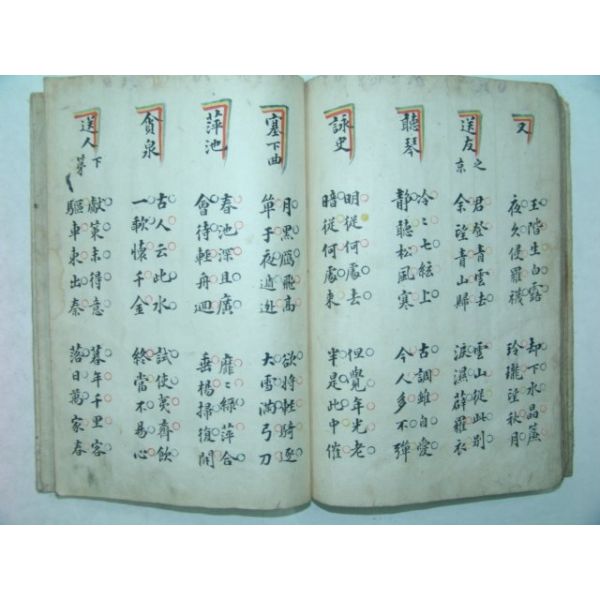 又
玉階生白露
夜久侵羅襪
却下水晶簾
玲瓏望秋月
送友之京
君登青雲去
余望青山歸
雲山從此別
淚濕薜羅衣
聽琴
冷〻七絃上
靜聽松風寒
古調雖自愛
今人多不彈
詠史
明從何處去
暗從何處來
但覺年光老
半是此中催
塞下曲
月黑鴈飛高
單于夜遁逃
欲將輕騎逐
大雪滿弓刀
萍池
春池深且廣
會待輕舟迴
靡〻綠萍合
垂楊掃復開
貪泉
古人云此水
一歃懷千金
試使夷齊飲
終當不易心
送人下第
獻策未待意
驅車東出秦
暮年千里客
落日萬家春